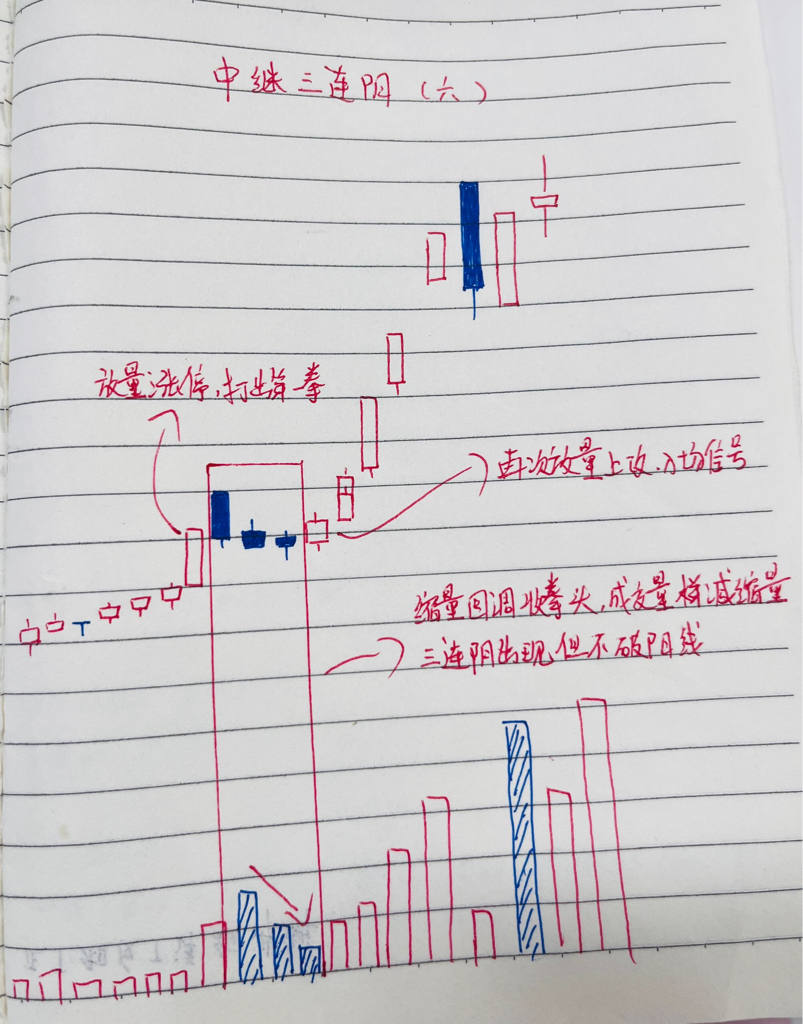 中继三连阴（六）
放量涨停，打出第一拳
再次放量上攻，入场信号
缩量回调收拳头，成交量梯减缩量
三连阴出现但不破阳线